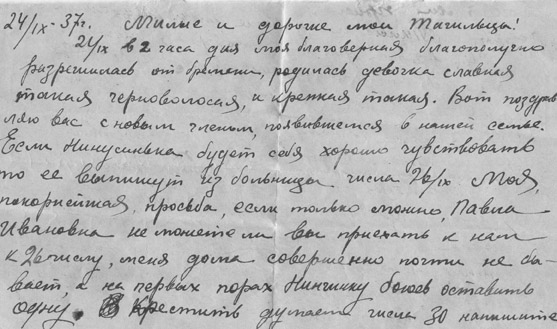 24/IX - 37г. Милые и дорогие мои Тагильцы!
24/IX в 2 часа дня моя благоверная благополучно
разрешилась от бремени, родилась девочка славная
такая черноволосая, и крепкая такая. Вот поздрав
ляю вас с новым членом, появившемся в нашей семье.
Если Нинусинька будет себя хорошо чувствовать
то ее выпишут из больницы числа 26/IX. Моя,
покорнейшая, просьба, если только можно, Павла
Ивановна не можете ли вы приехать к нам
к 26 числу, меня дома совершенно почти не бы-
вает, а на первых порах Ниночку боюсь оставить
одну. Крестить думаем числа 30 напишите